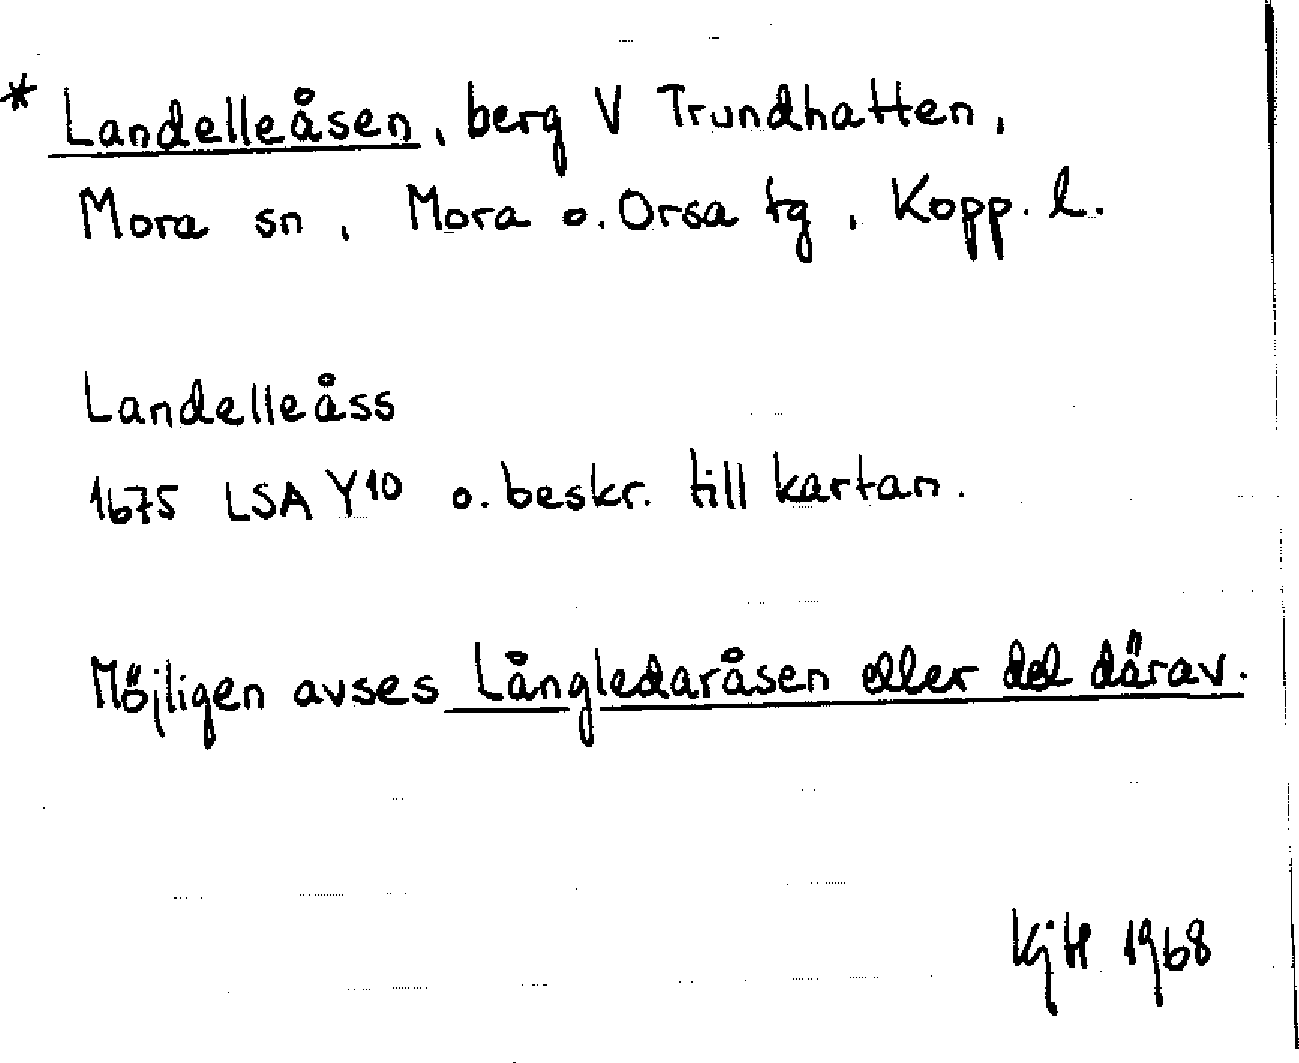 * Landelleåsen, berg V Trundhatten,
Mora sn, Mora o. Orsa tg, Kopp. l.
Landelleåss
1675 LSA Y10 o. beskr. till kartan.
Möjligen avses Långledaråsen eller del därav.
KjH 1968